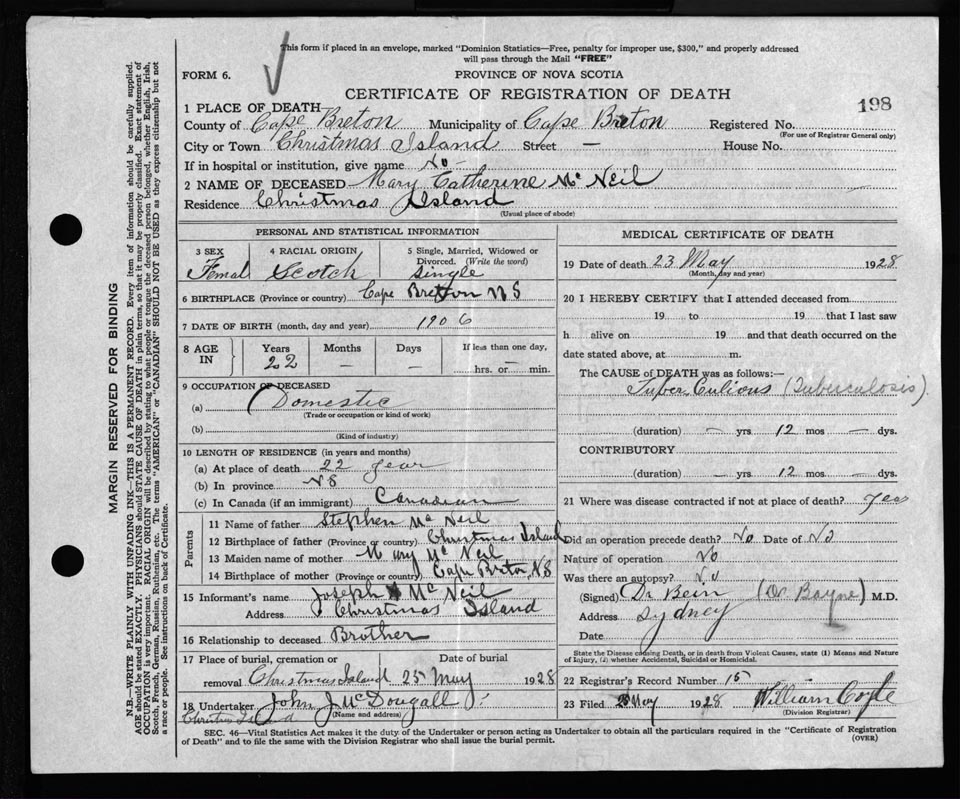 This form if placed in an envelope, marked "Dominion Statistics—Free, penalty for improper use, $300," and properly addressed
will pass through the Mail "FREE"
FORM 6.
PROVINCE OF NOVA SCOTIA
CERTIFICATE OF REGISTRATION OF DEATH
198
1 PLACE OF DEATH
County of Cape Breton Municipality of Cape Breton Registered No.
(For use of Registrar General only)
City or Town Christmas Island Street — House No.
If in hospital or institution, give name No —
2 NAME OF DECEASED Mary Catherine Mc Neil
Residence Christmas Island
(Usual place of abode)
PERSONAL AND STATISTICAL INFORMATION
3 SEX 4 RACIAL ORIGIN 5 Single, Married, Widowed or Divorced. (Write the word)
Femal Scotch Single
6 BIRTHPLACE (Province or country) Cape Bretton N S
7 DATE OF BIRTH (month, day and year) 1906
8 AGE IN Years Months Days If less than one day,
22 — — — hrs. or min.
9 OCCUPATION OF DECEASED
(a) Domestic
(Trade or occupation or kind of work)
(b)
(Kind of industry)
10 LENGTH OF RESIDENCE (in years and months)
(a) At place of death 22 year
(b) In province NS
(c) In Canada (if an immigrant) Canadian
Parents
11 Name of father Stephen Mc Neil
12 Birthplace of father (Province or country) Christmas Island
13 Maiden name of mother Mary Mc Neil
14 Birthplace of mother (Province or country) Cape Breton, NS
15 Informant's name Joseph Mc Neil
Address Christmas Island
16 Relationship to deceased Brother
17 Place of burial, cremation or Date of burial
removal Christmas Island 25 May 1928
18 Undertaker John J McDougall
(Name and address)
Christmas Island
MEDICAL CERTIFICATE OF DEATH
19 Date of death 23 May 1928
(Month, day and year)
20 I HEREBY CERTIFY that I attended deceased from
19 to 19 that I last saw
h alive on 19 and that death occurred on the
date stated above, at m.
The CAUSE OF DEATH was as follows:—
Tuber Culious (Tuberculosis)
(duration) — yrs 12 mos — dys.
CONTRIBUTORY
(duration) — yrs 12 mos — dys.
21 Where was disease contracted if not at place of death? yes
Did an operation precede death? No Date of No
Nature of operation No
Was there an autopsy? No
(Signed) Dr Bein (Dr Bayne) M.D.
Address Sydney
Date
State the Disease causing Death, or in death from Violent Causes, state (1) Means and Nature
of Injury, (2) whether Accidental, Suicidal or Homicidal.
22 Registrar's Record Number 15
23 Filed May 1928 William Coyle
(Division Registrar)
SEC. 46—Vital Statistics Act makes it the duty of the Undertaker or person acting as Undertaker to obtain all the particulars required in the "Certificate of Registration
of Death" and to file the same with the Division Registrar who shall issue the burial permit.
(OVER)
MARGIN RESERVED FOR BINDING
N.B.—WRITE PLAINLY WITH UNFADING INK—THIS IS A PERMANENT RECORD. Every item of information should be carefully supplied.
AGE should be stated EXACTLY. PHYSICIANS should STATE CAUSE OF DEATH in plain terms, so that it may be properly classified. Exact statement of
OCCUPATION is very important. RACIAL ORIGIN will be described by stating to what people or tongue the deceased person belonged, whether English, Irish,
Scotch, French, German, Russian, Ruthenian, etc. The terms "AMERICAN" or "CANADIAN" SHOULD NOT BE USED as they express citizenship but not
a race or people. See instructions on back of Certificate.